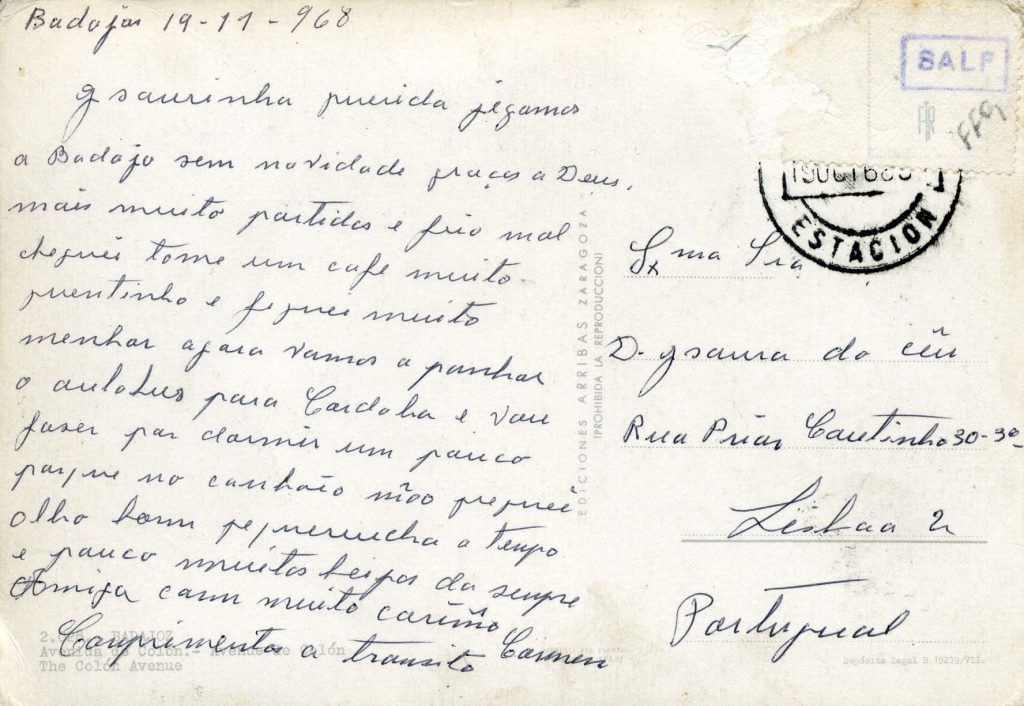 Badajos 19-11-968
Isaurinha querida jegamos
a Badajo sem navidade graças a Deus,
mais muito partidas e frio mal
cheguei tome um cafe muito
quentinho e fiquei muito
menhor agora vamos a panhar
o autobus para Cordoba e vou
faser por dormir um pouco
porque no canboio não preguei
olho bom pequerrucha o tenpo
e pouco muitos beijos da senpre
Amiga com muito cariño
Conprimentos a transito Carmen
2. BADAJOZ
Avenida de Colón.- Avenue de Colón
The Colón Avenue
EDICIONES ARRIBAS ZARAGOZA
(PROHIBIDA LA REPRODUCCION)
SALF
FFG
19OCT68
ESTACION
Exma Sra
D. Isaura do céu
Rua Prior Coutinho 30-3º
Lisboa 2
Portugual
Depósito Legal B 19279/VII.